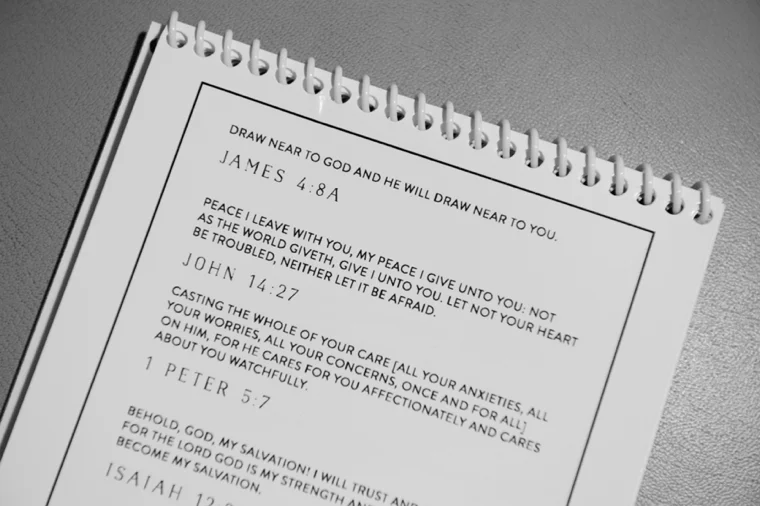 DRAW NEAR TO GOD AND HE WILL DRAW NEAR TO YOU.
JAMES 4:8A
PEACE I LEAVE WITH YOU, MY PEACE I GIVE UNTO YOU: NOT
AS THE WORLD GIVETH, GIVE I UNTO YOU. LET NOT YOUR HEART
BE TROUBLED, NEITHER LET IT BE AFRAID.
JOHN 14:27
CASTING THE WHOLE OF YOUR CARE [ALL YOUR ANXIETIES, ALL
YOUR WORRIES, ALL YOUR CONCERNS, ONCE AND FOR ALL]
ON HIM, FOR HE CARES FOR YOU AFFECTIONATELY AND CARES
ABOUT YOU WATCHFULLY.
1 PETER 5:7
BEHOLD, GOD, MY SALVATION! I WILL TRUST AND
FOR THE LORD GOD IS MY STRENGTH AND
BECOME MY SALVATION.
ISAIAH